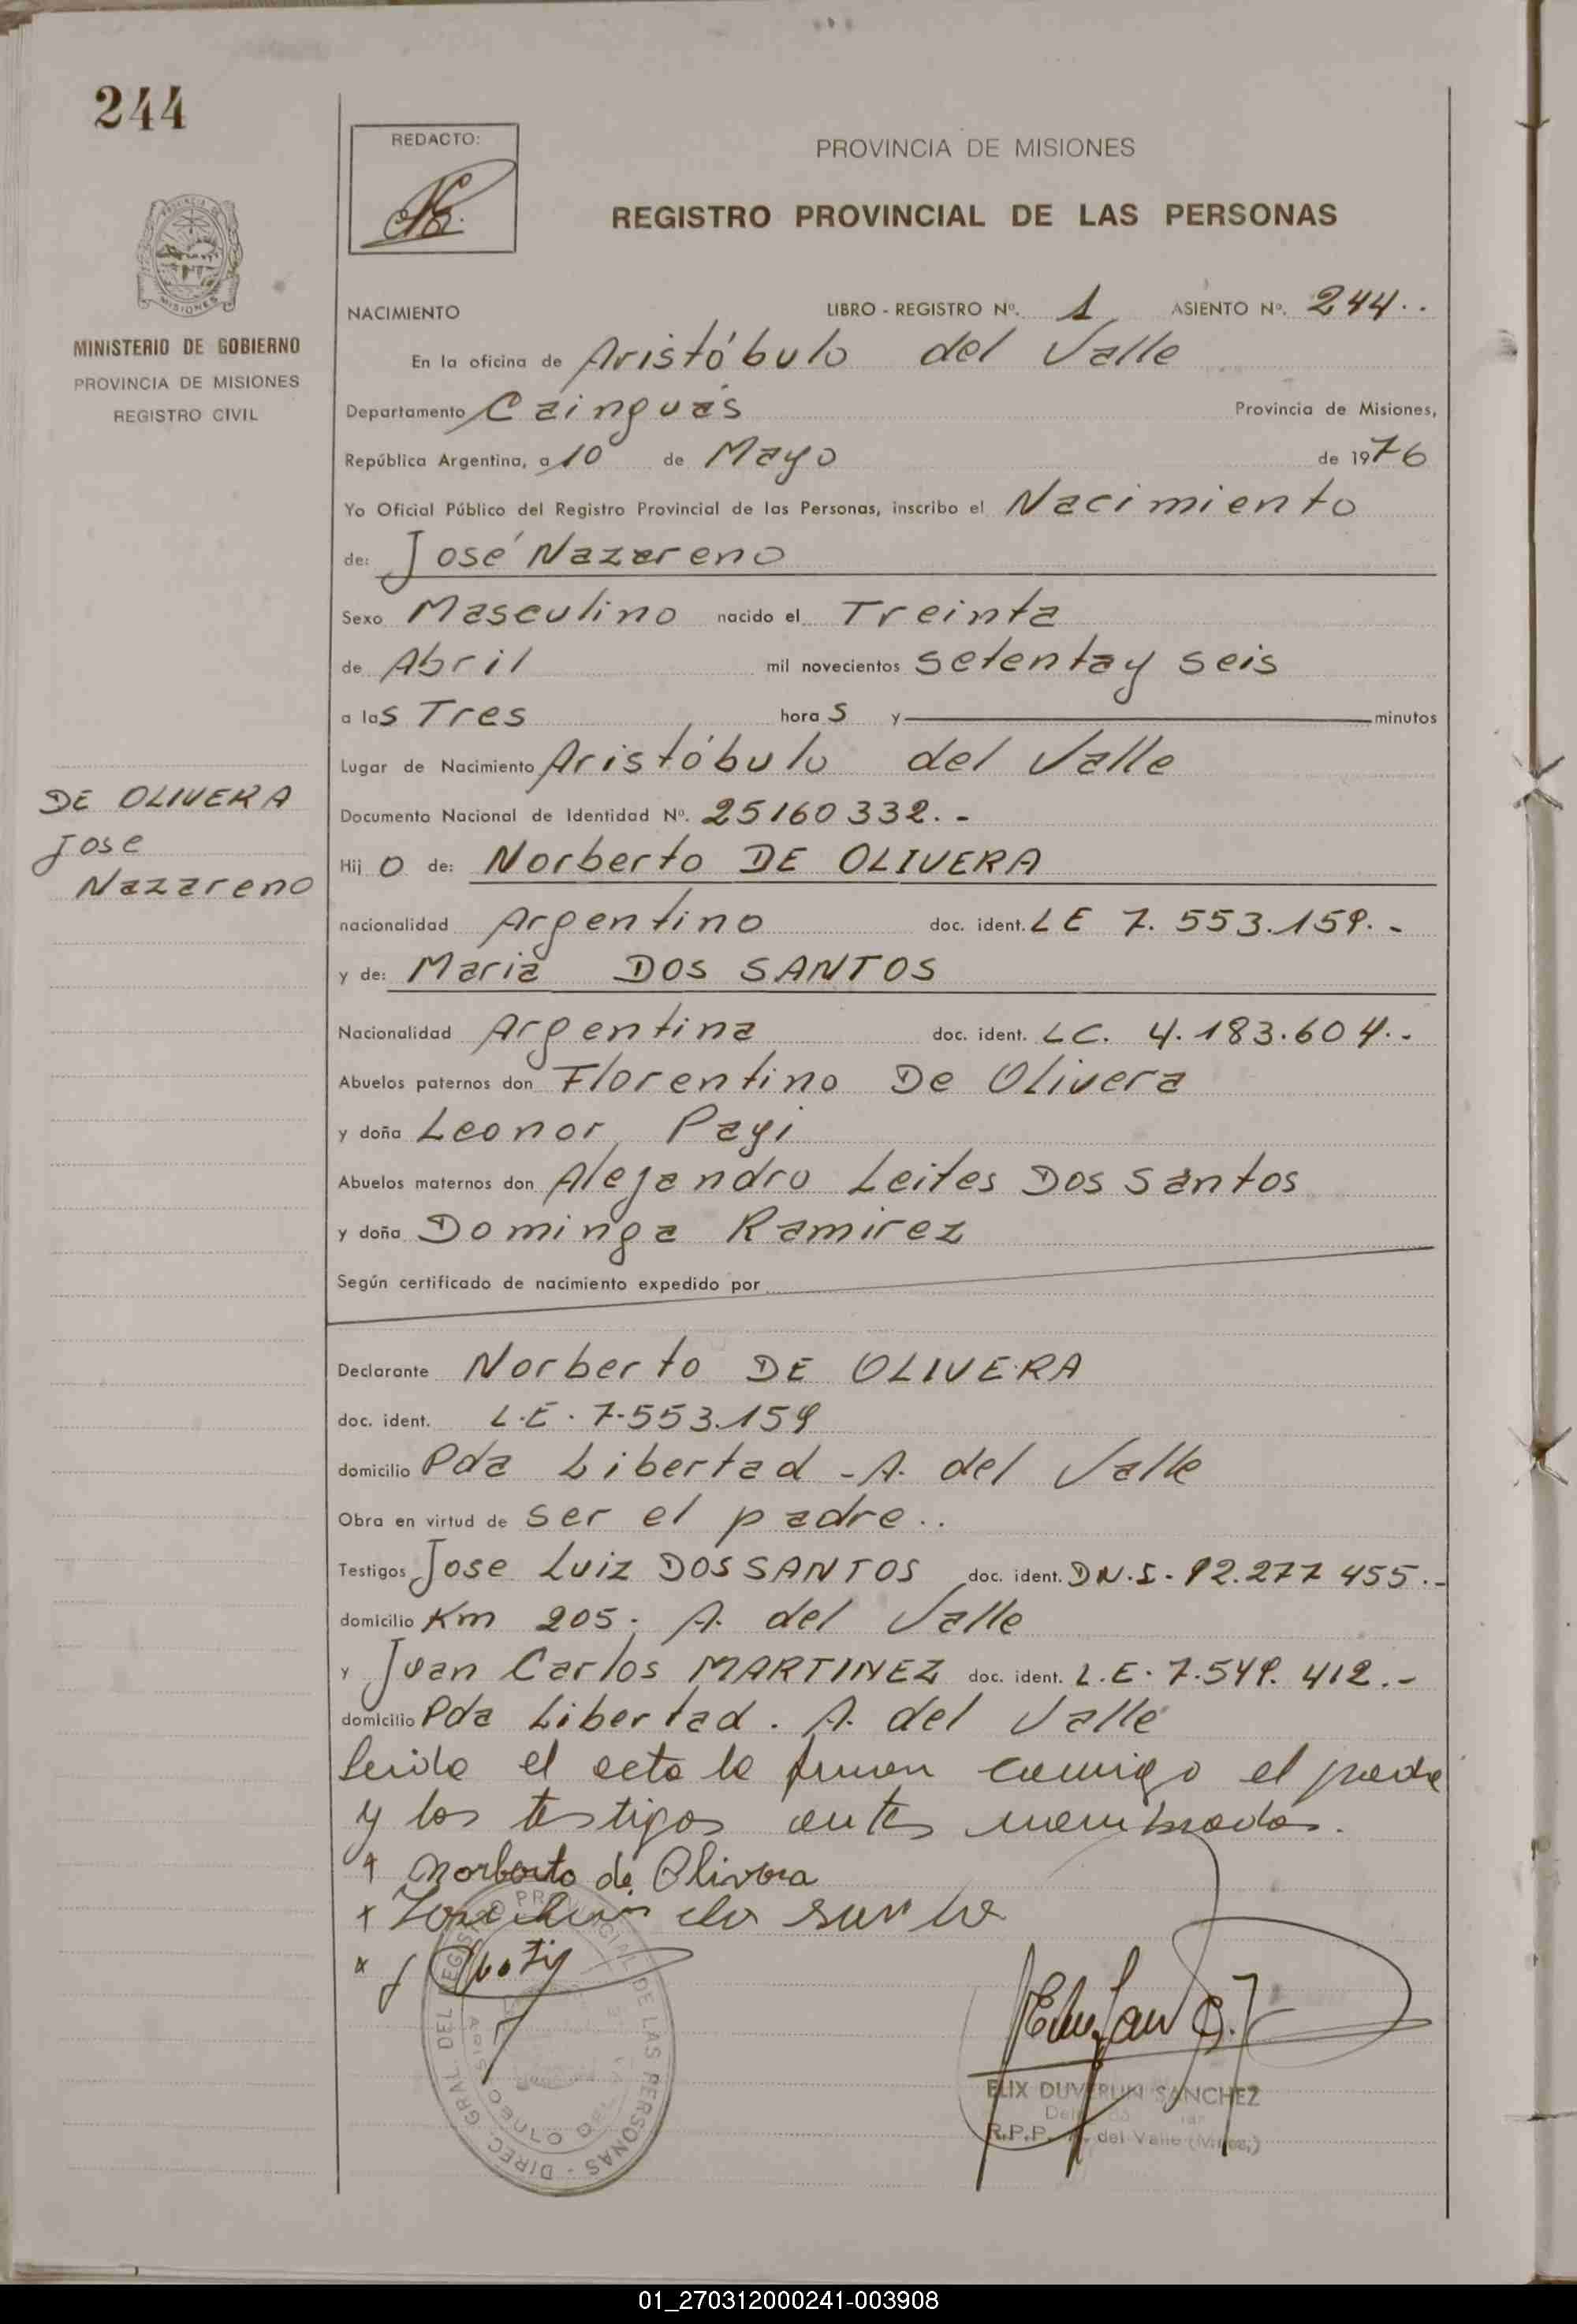 244
REDACTO:
PROVINCIA DE MISIONES
REGISTRO PROVINCIAL DE LAS PERSONAS
MINISTERIO DE GOBIERNO
PROVINCIA DE MISIONES
REGISTRO CIVIL
NACIMIENTO LIBRO - REGISTRO Nº. 1 ASIENTO Nº. 244..
En la oficina de Aristóbulo del Valle
Departamento Cainguás Provincia de Misiones,
República Argentina, a 10 de Mayo de 1976
Yo Oficial Público del Registro Provincial de las Personas, inscribo el Nacimiento
de: José Nazareno
Sexo Masculino nacido el Treinta
de Abril mil novecientos setenta y seis
a las Tres horas y minutos
Lugar de Nacimiento Aristóbulo del Valle
DE OLIVERA
Jose
Nazareno
Documento Nacional de Identidad Nº. 25160332.-
Hijo de: Norberto DE OLIVERA
nacionalidad Argentino doc. ident. LE 7.553.159.-
y de: Maria DOS SANTOS
Nacionalidad Argentina doc. ident. LC. 4.183.604.-
Abuelos paternos don Florentino De Olivera
y doña Leonor Payi
Abuelos maternos don Alejandro Leites Dos Santos
y doña Dominga Ramirez
Según certificado de nacimiento expedido por
Declarante Norberto DE OLIVERA
doc. ident. L.E. 7.553.159
domicilio Pda Libertad - A. del Valle
Obra en virtud de ser el padre..
Testigos Jose Luiz DOS SANTOS doc. ident. DN.I. 92.277 455.-
domicilio Km 205. A. del Valle
y Juan Carlos MARTINEZ doc. ident. L.E. 7.549.412.-
domicilio Pda Libertad. A. del Valle
Leida el acta la firman conmigo el padre
y los testigos antes nombrados.
Norberto de Olivera
REGISTRO PROVINCIAL DE LAS PERSONAS - DIREC. GRAL. DEL
ELIX DUVERLIN SANCHEZ
R.P.P. A. del Valle (Mnes.)
01_270312000241-003908